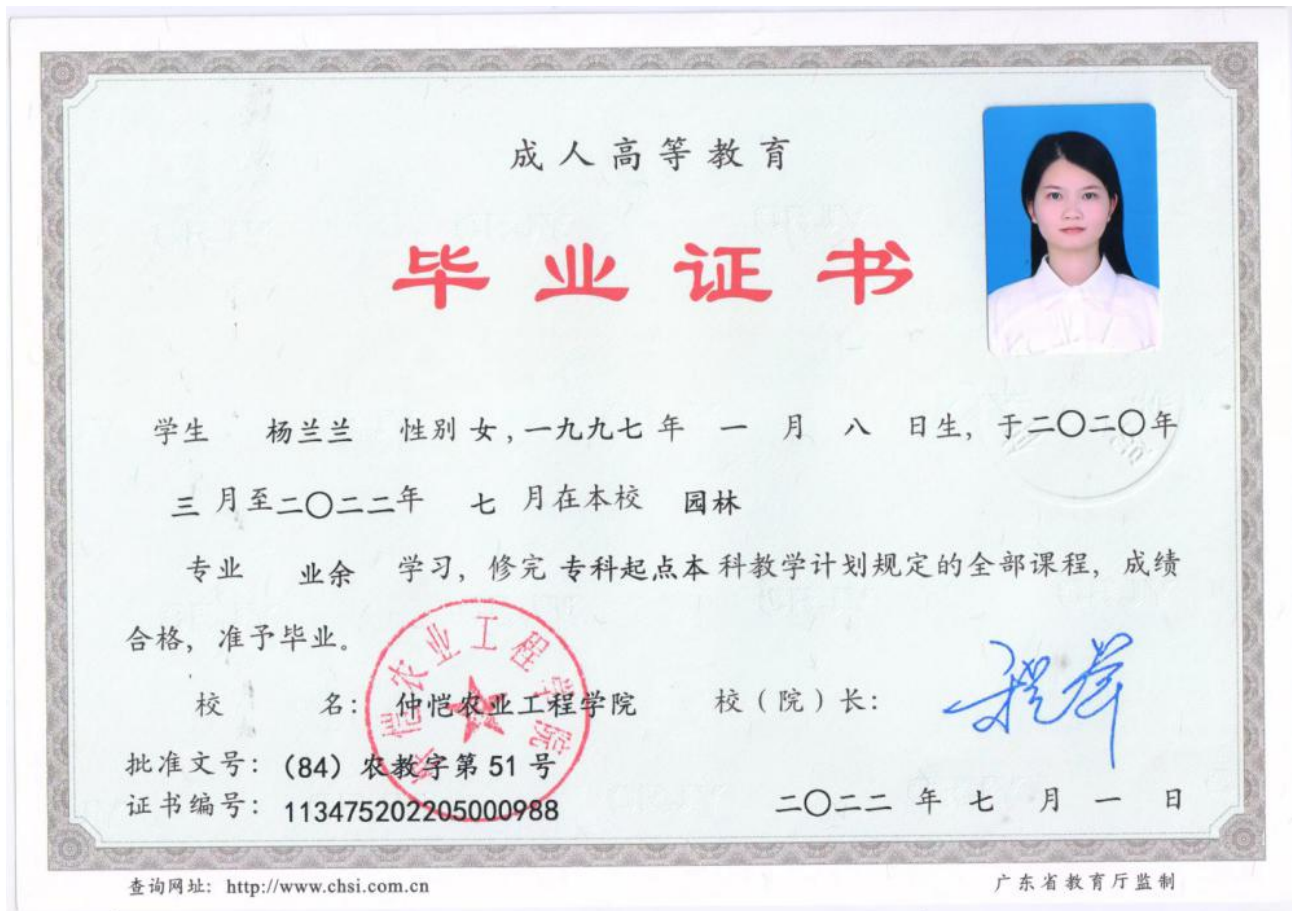 成人高等教育
毕业证书
学生 杨兰兰 性别 女,一九九七 年 一 月 八 日生, 于二〇二〇年
三 月至二〇二二年 七 月在本校 园林
专业 业余 学习, 修完 专科起点本 科教学计划规定的全部课程, 成绩
合格, 准予毕业。
校 名: 仲恺农业工程学院 校(院)长:
批准文号: (84) 农教字第 51 号
证书编号: 113475202205000988 二〇二二 年 七 月 一 日
查询网址: http://www.chsi.com.cn 广东省教育厅监制